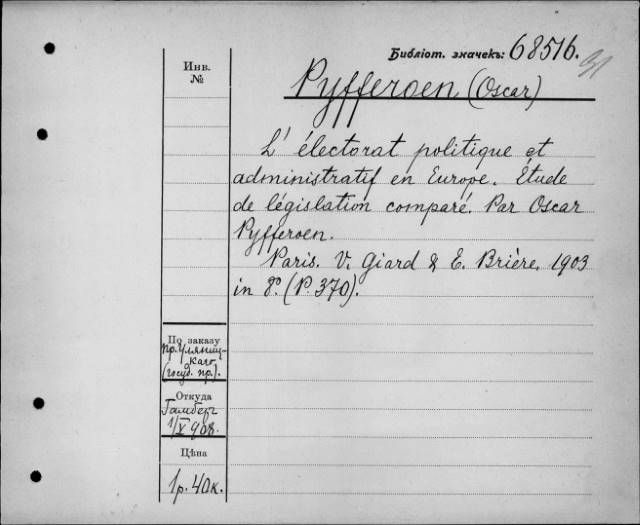 Библіот. значекъ: 68516.
31
Инв.
№
Pyfferoen (Oscar)
L' électorat politique et
administratif en Europe. Étude
de législation comparé. Par Oscar
Pyfferoen.
Paris. V. Giard & E. Brière. 1903
in 8º. (P. 370).
По заказу
пр. Уляниц-
каго
(госуд. пр.).
Откуда
Гамберг
1/V 908.
Цѣна
1р. 40к.